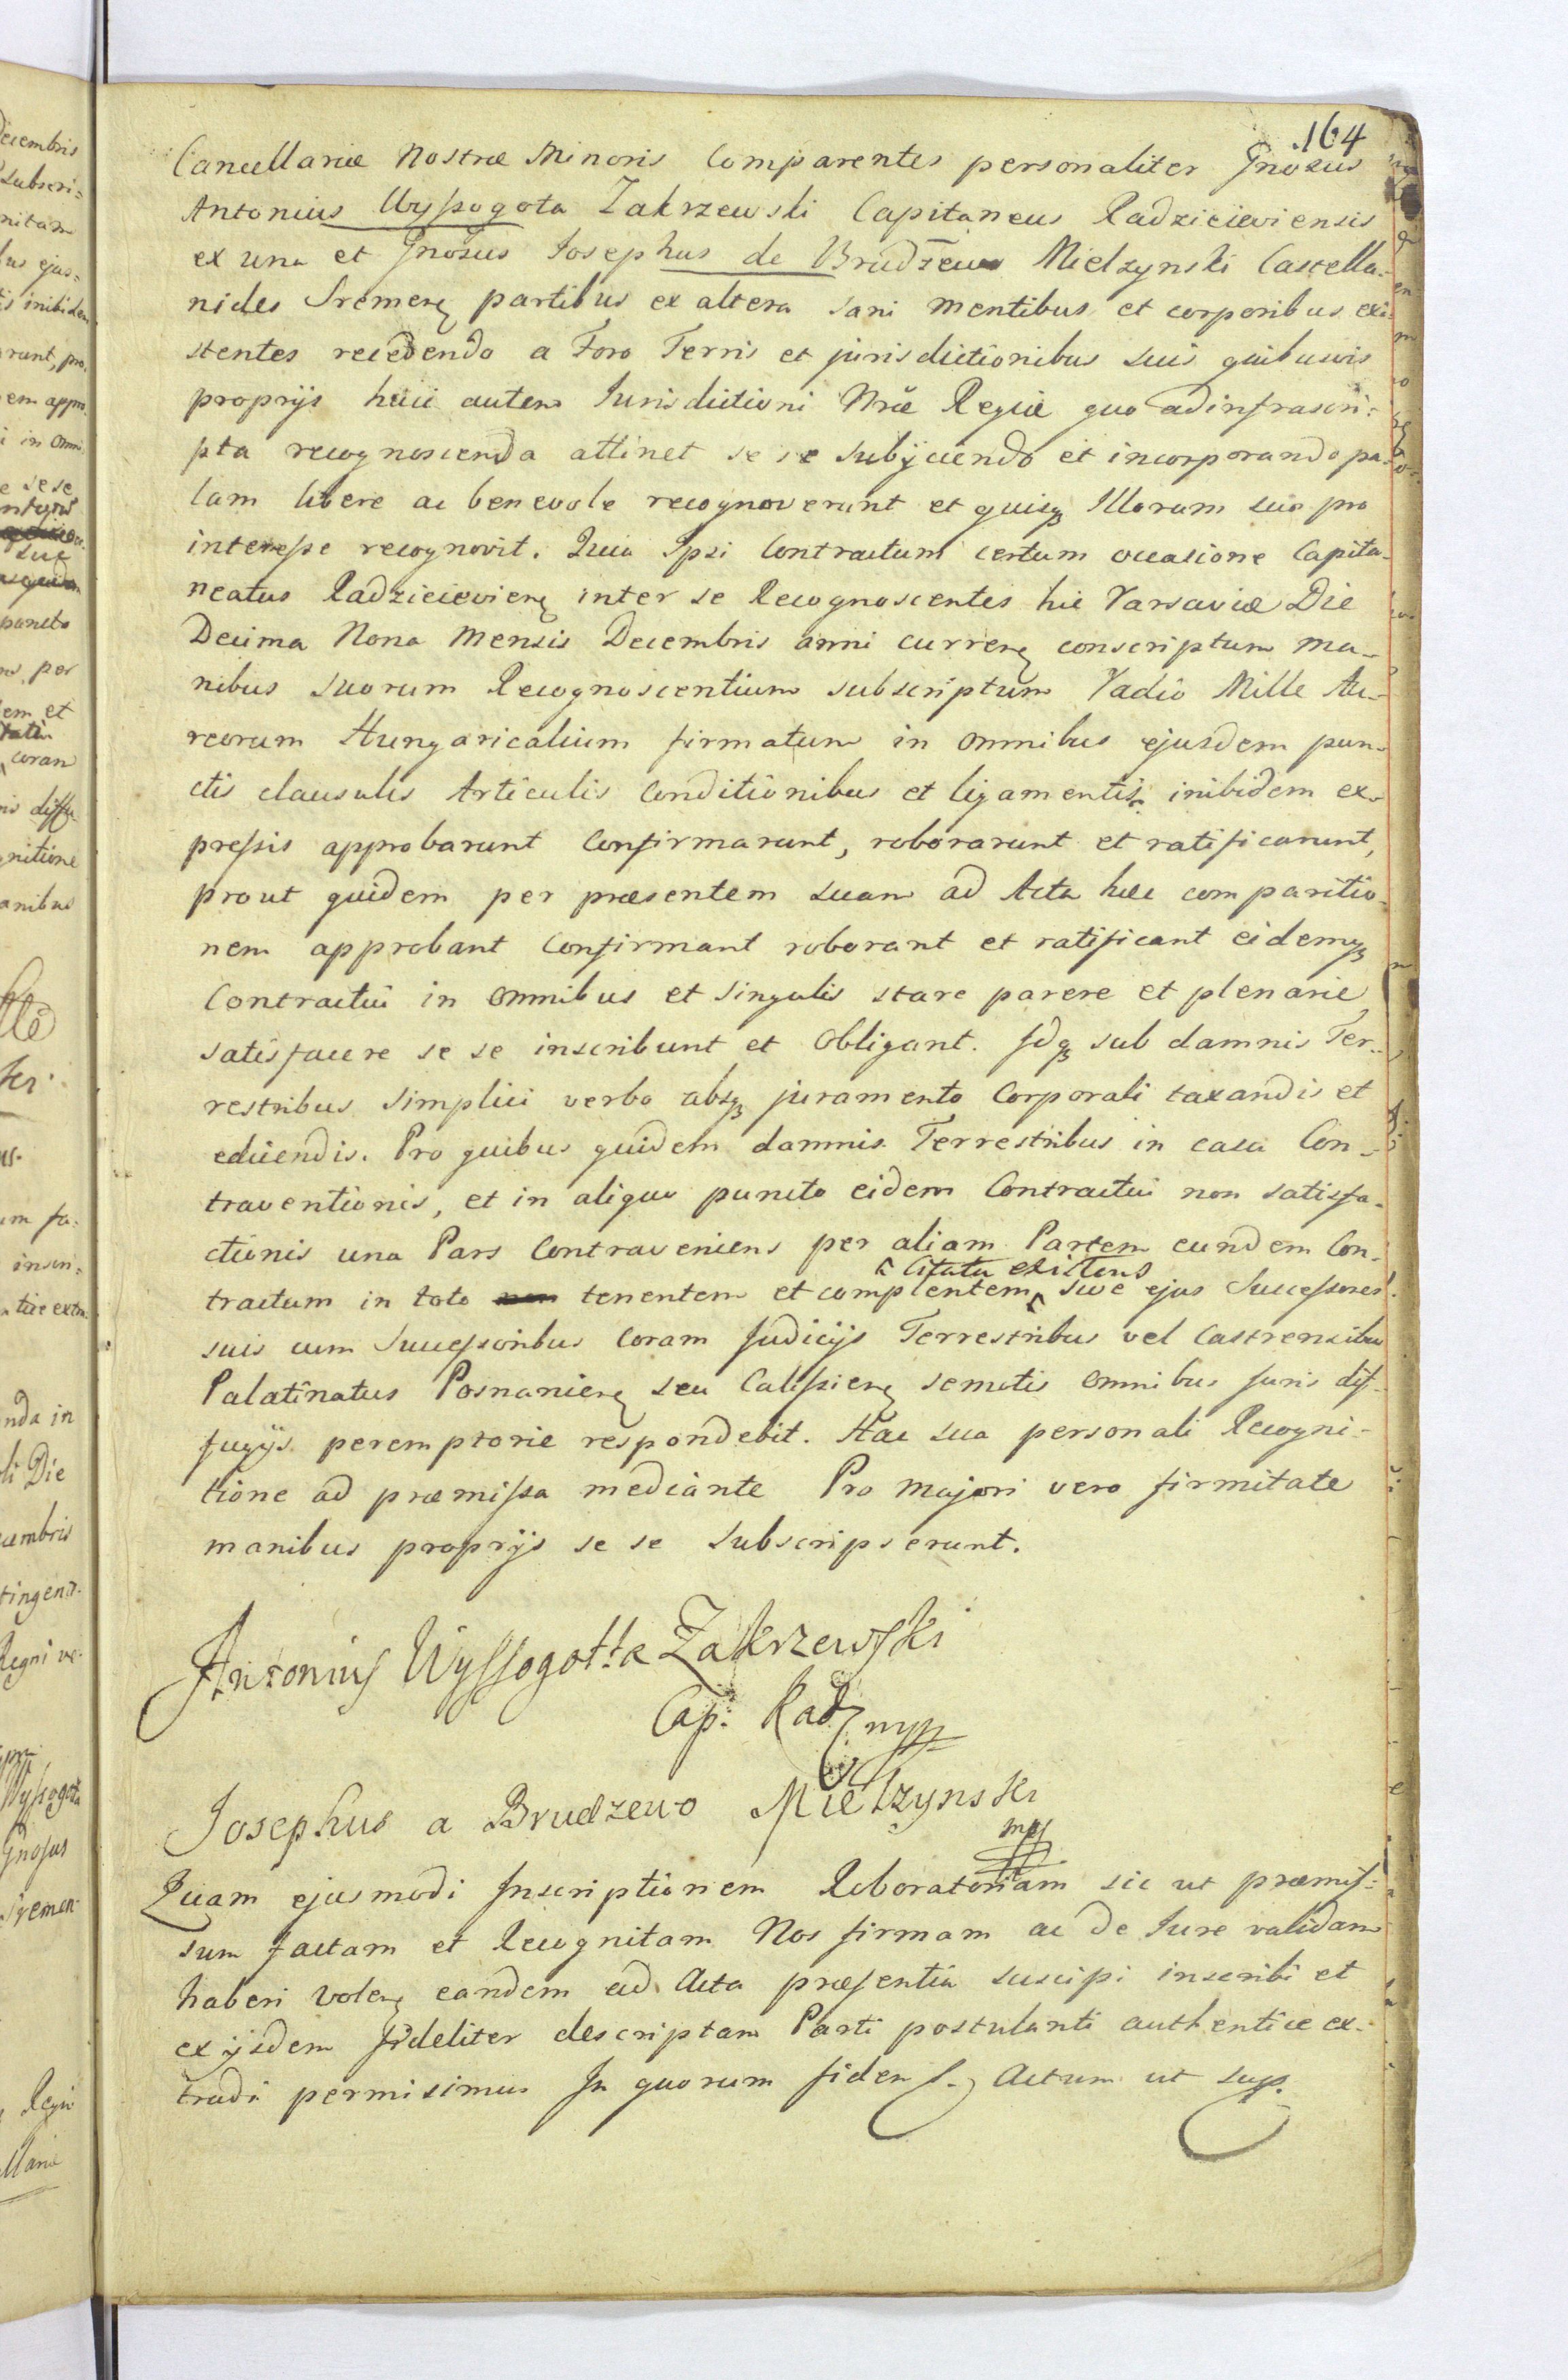 164
Cancellariæ Nostræ Minoris Comparentes personaliter Gnosus
Antonius Wyssogota Zakrzewski Capitaneus Radzicieviensis
ex una et Gnosus Josephus de Brudzewo Mielzynski Castella-
nides Sremeṇ partibus ex altera sani mentibus et corporibus exi-
stentes recedendo a Foro Terris et jurisdictionibus suis quibusvis
proprijs huic autem Jurisdictioni Nræ Regiæ quo ad infrascri-
pta recognoscenda attinet se se subijciendo et incorporando pa-
lam libere ac benevole recognoverunt et quisqꝫ Illorum suo pro
interesse recognovit. Quia Ipsi Contractum certum occasione Capita-
neatus Radzicievieṇ inter se Recognoscentes hic Varsaviæ Die
Decima Nona Mensis Decembris anni curreṇ conscriptum ma-
nibus suorum Recognoscentium subscriptum Vadio Mille Au-
reorum Hungaricalium firmatum in omnibus ejusdem pun-
ctis clausulis Articulis Conditionibus et ligamentis inibidem ex-
pressis approbarunt Confirmarunt, roborarunt et ratificarunt,
prout quidem per præsentem suam ad Acta hæc comparitio-
nem approbant Confirmant roborant et ratificant eidemqꝫ
Contractui in omnibus et singulis stare parere et plenarie
satisfacere se se inscribunt et Obligant. Idqꝫ sub damnis Ter-
restribus simplici verbo absqꝫ juramento Corporali taxandis et
edicendis. Pro quibus quidem damnis Terrestribus in casu Con-
traventionis, et in aliquo puncto eidem Contractui non satisfa-
ctionis una Pars Contraveniens per aliam Partem eundem Con-
citata existens
tractum in toto tenentem et complentem sive ejus Successores
suis cum Successoribus Coram Judicijs Terrestribus vel Castrensibus
Palatinatus Posnanieṇ seu Calissieṇ semotis omnibus Juris dif-
fugijs peremptorie respondebit. Hac sua personali Recogni-
tione ad præmissa mediante Pro Majori vero firmitate
manibus proprijs se se subscripserunt.
Antonius Wyssogotta Zakrzewski
Cap: Radz mpp
Josephus a Brudzewo Mielzynski
mpp
Quam ejusmodi Inscriptionem Roboratoriam sic ut præmis-
sum factam et Recognitam Nos firmam ac de Jure validam
haberi voleṇ eandem ad Acta præsentia suscipi inscribi et
ex ijsdem fideliter descriptam Parti postulanti authentice ex-
tradi permisimus In quorum fidem Actum ut sup.